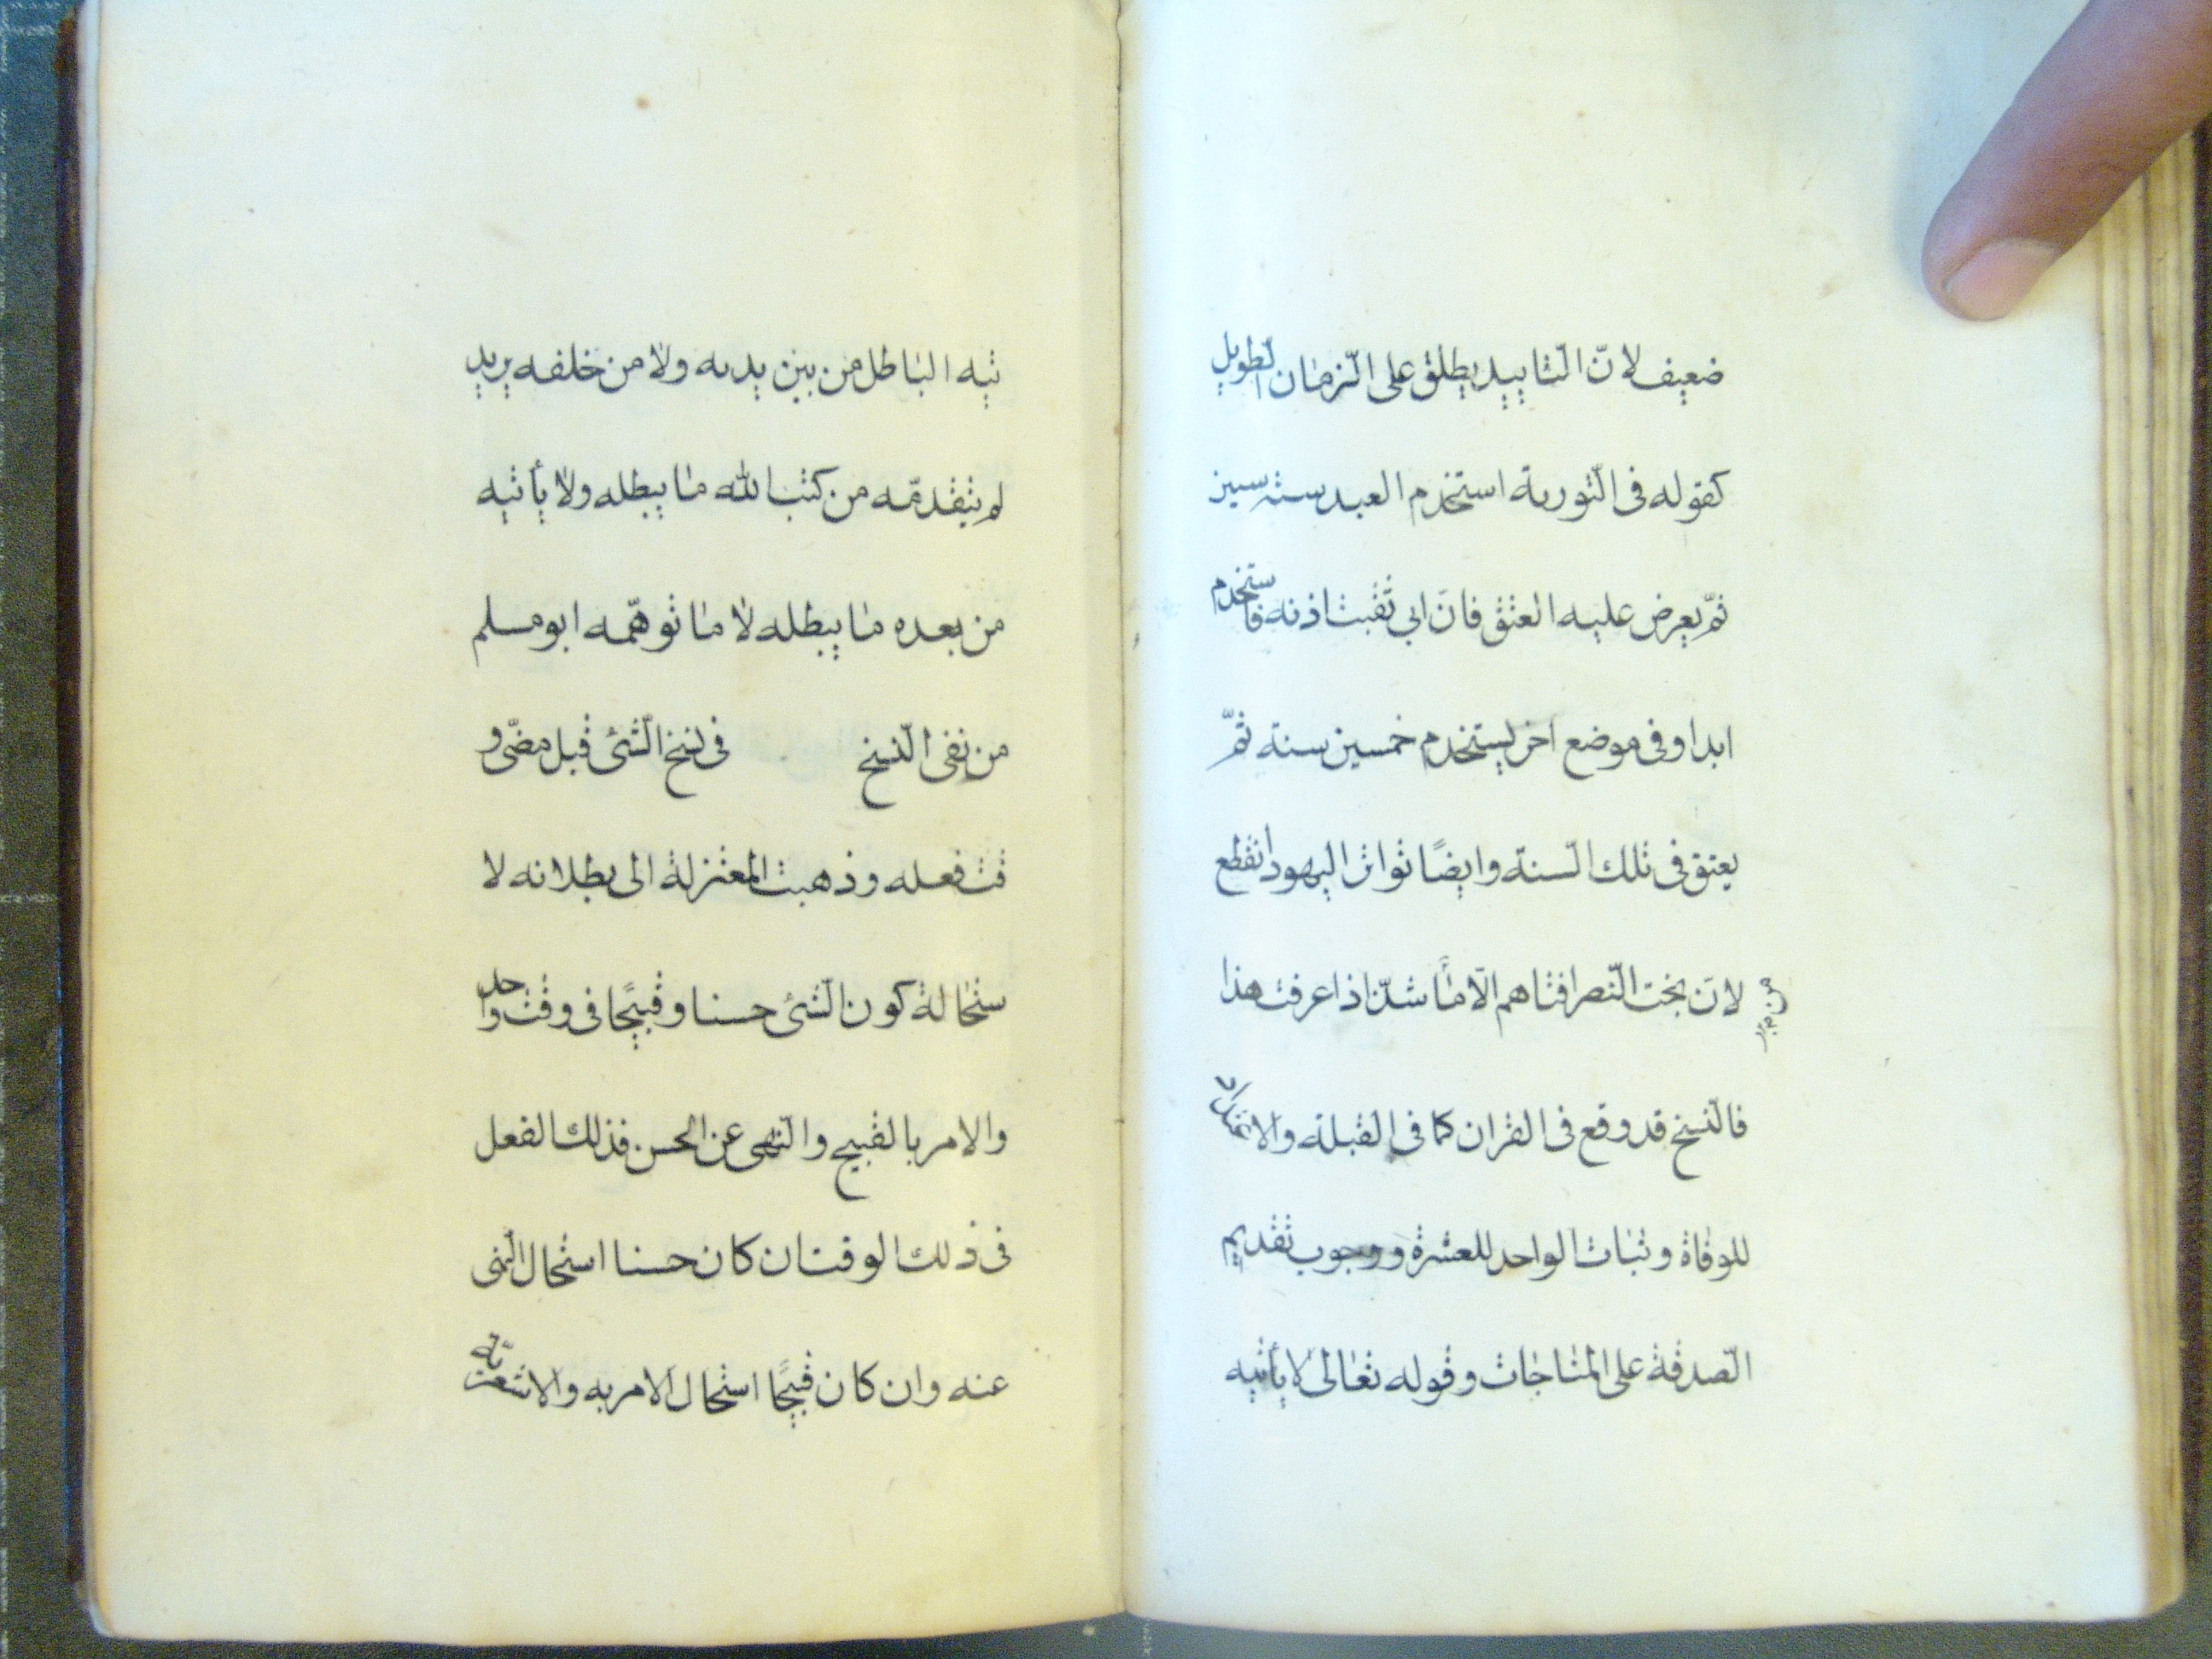 ضعيف لانّ التّأبيد يطلق على الزّمان الطّويل
كقوله فى التّورية استخدم العبد ستّ سنين
ثمّ يعرض عليه العتق فان ابى ثقبت اذنه فاستخدم
ابدا وفى موضع اخر يستخدم خمسين سنة ثمّ
يعتق فى تلك السّنة وايضًا تواتر اليهود انقطع
لانّ بخت النّصر افناهم الّا ما شذّ اذا عرفت هذا
فالنّسخ قد وقع فى القران كما فى القبلة والاعتداد
للوفاة وثبات الواحد للعشرة ووجوب تقديم
الصّدقة على المناجات وقوله تعالى لا يأتيه
تيه الباطل من بين يديه ولا من خلفه يريد
لم يتقدمّه من كتب الله ما يبطله ولا يأتيه
من بعده ما يبطله لا ما توهمّه ابو مسلم
من نفى النّسخ فى نسخ الشّئ قبل مضّى و
قت فعله وذهبت المعتزلة الى بطلانه لا
ستحالة كون الشّئ حسنا وقبيحًا فى وقت واحد
والامر بالقبيح والنّهى عن الحسن فذلك الفعل
فى ذلك الوقت ان كان حسنا استحال النّهى
عنه وان كان قبيحًا استحال الامر به والاشعريّة